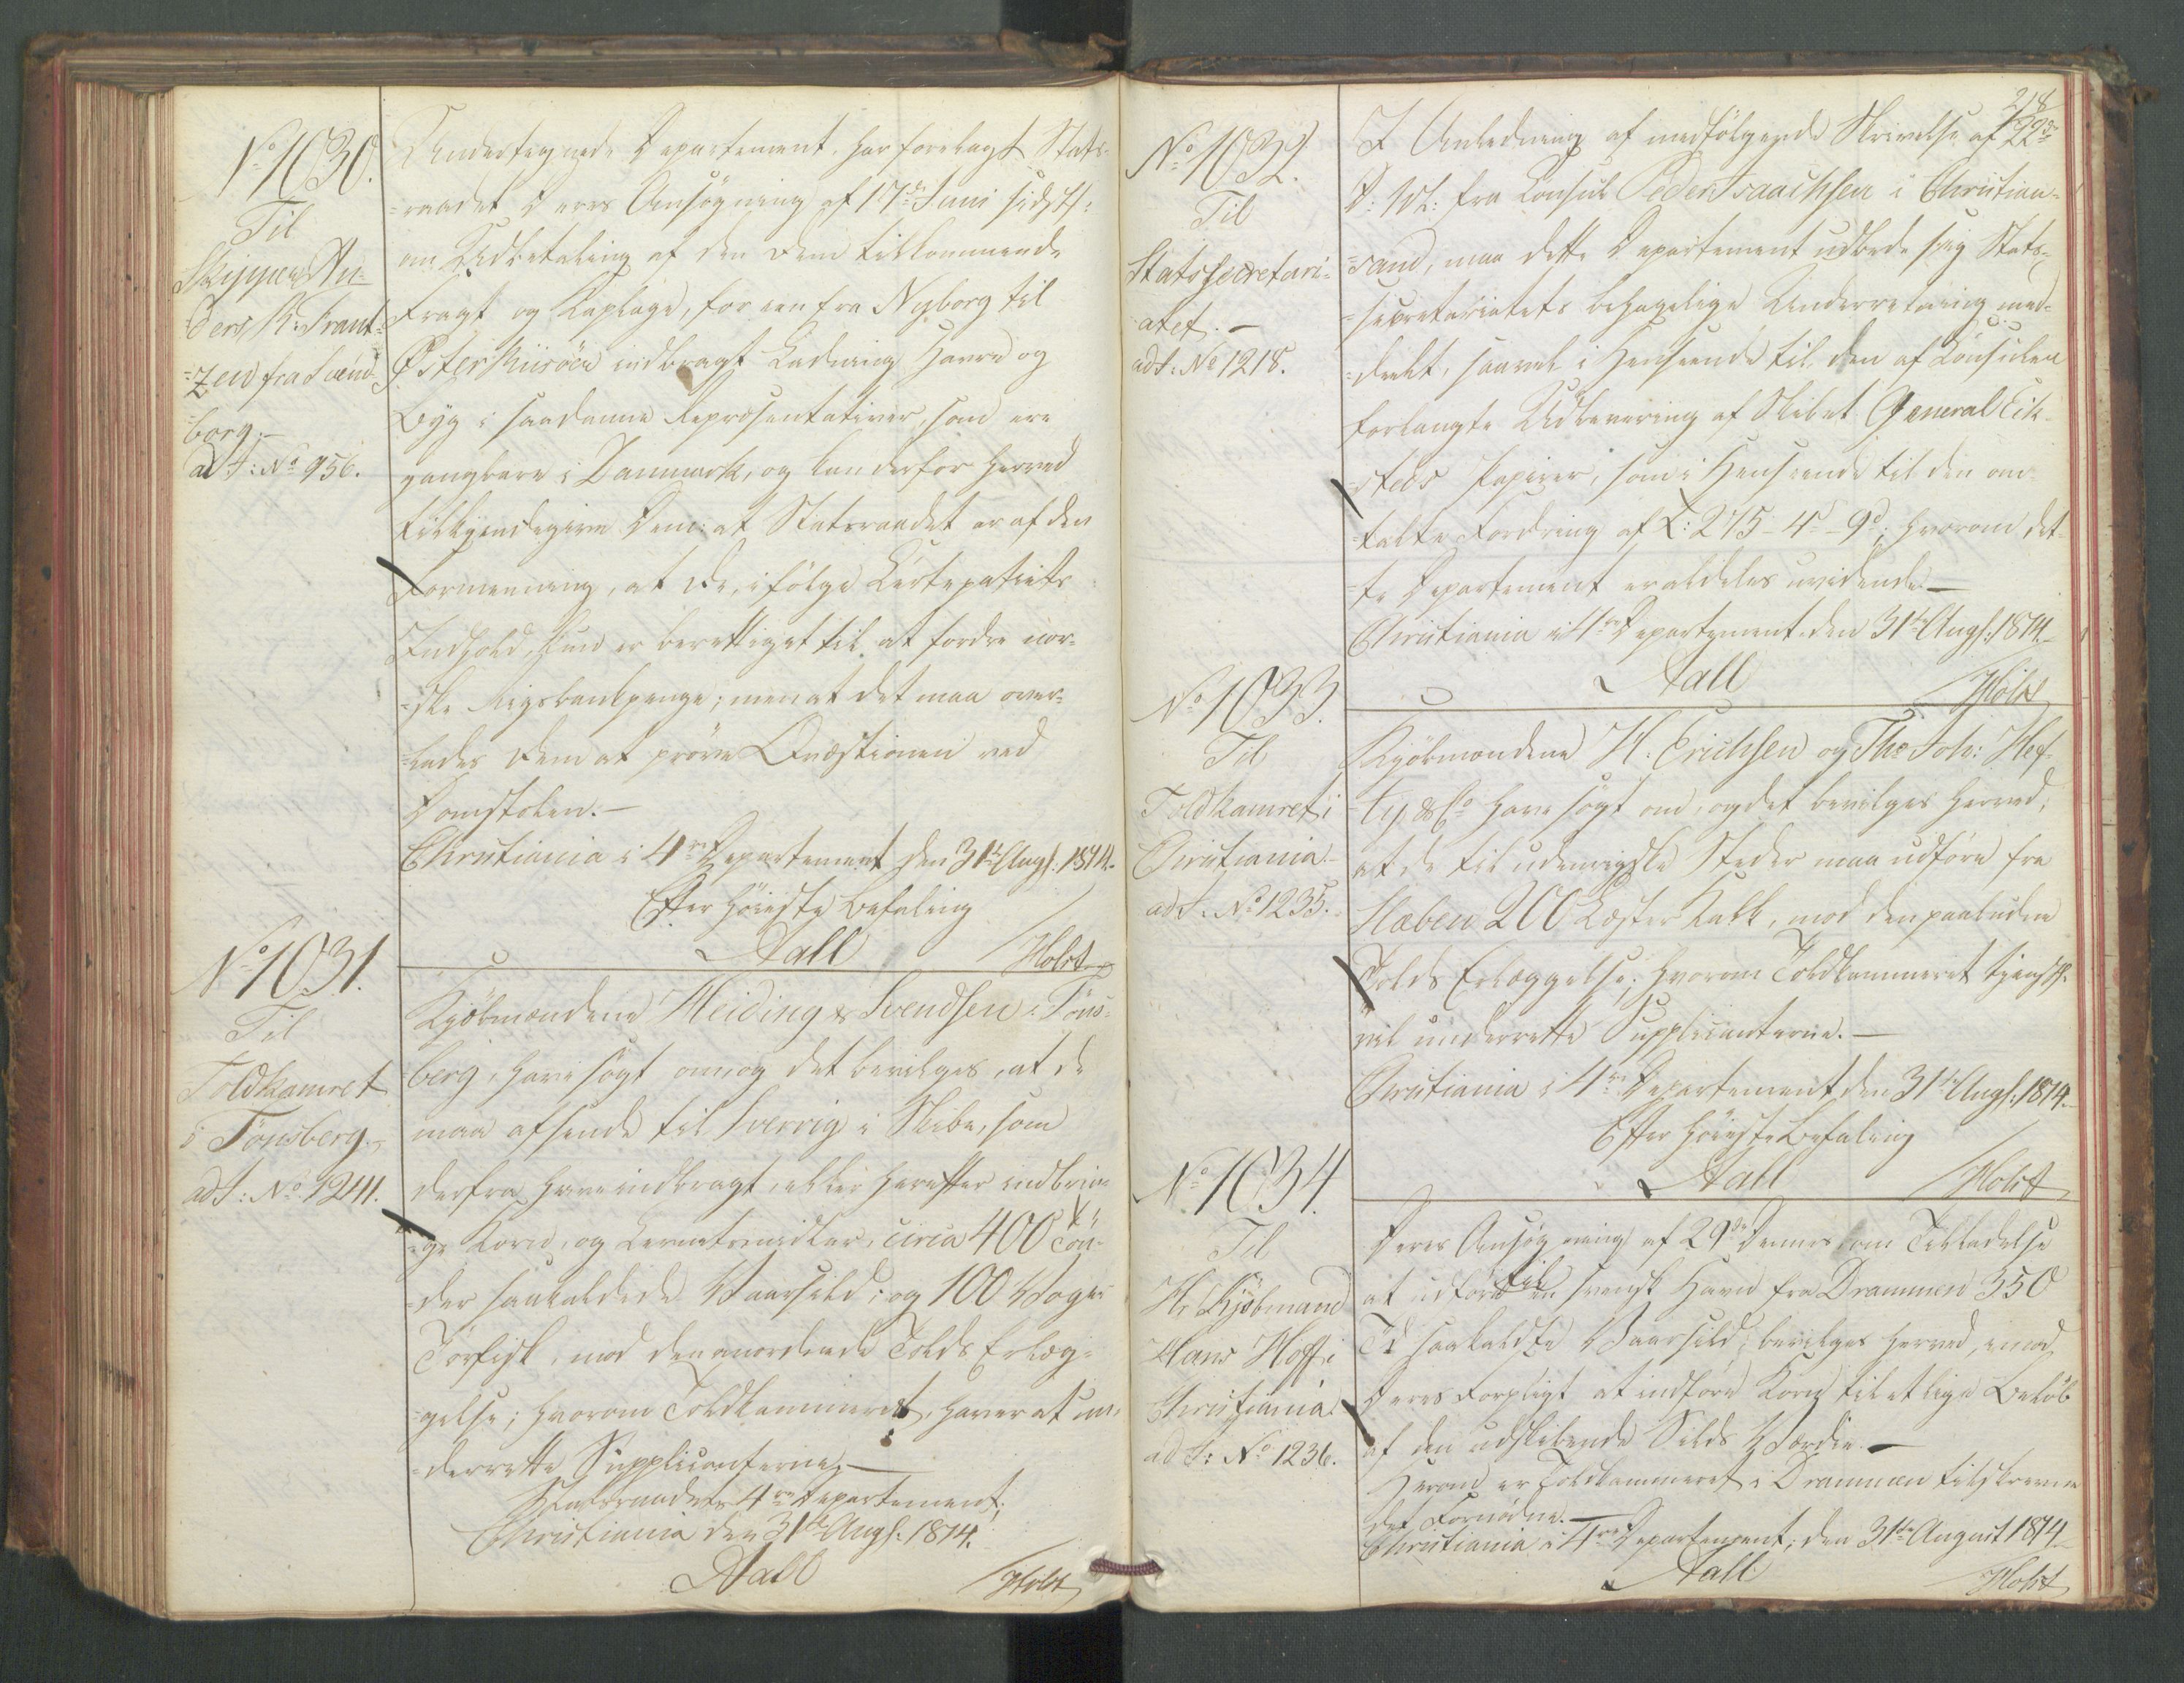 No 1030.
Til
Skipper An-
ders K: Frant-
=zen fra Svend-
=borg.-
ad J: No 956.
Undertegnede Departement har forelagt Stats-
=raadet Deres Ansøgning af 17de Juni sidstl:
om Udbetaling af den Dem tilkommende
Fragt og Kaplage, for een fra Nyborg til
Østerriisöer indbragt Ladning Havre og
Byg i saadanne Repræsentativer, som ere
gangbare i Danmark, og kan derfor herved
tilkjendegive Dem: at Statsraadet er af den
Formening, at De, ifölge Certepartiets
Indhold, kun er berettiget til at fordre nor-
=ske Rigsbankpenge; men at det maa over-
=lades Dem at pröve Qvæstionen ved
Domstolen.-
Christiania i 4de Departement den 31te Augs: 1814.
Efter Höieste Befaling
Aall
Holst
No 1031.
Til
Toldkamret
i Tönsberg.-
ad J: No 1241.
Kjöbmændene Meiding & Svendsen i Töns-
=berg, have sögt om, og det bevilges, at de
maa afsende til Sverrig i Skibe, som
derfra have indbragt, eller herefter indbrin-
=ge Korn, og Levnetsmidler, circa 400 Tön-
=der saakaldede Vaarsild, og 100 Voger
Törfisk, mod den anordnede Tolds Erlæg-
=gelse; hvorom Toldkammeret, haver at un-
=derrette Supplicanterne.-
Statsraadets 4de Departement,
Christiania den 31te Augs: 1814.
Aall
Holst
218
No 1032.
Til
Statssecretari-
=atet.-
ad J: No 1218.
I Anledning af medfölgende Skrivelse af 22de
D: M: fra Consul Peder Isaachsen i Christian-
=sand, maa dette Departement udbede sig Stats-
=secretariatets behagelige Underretning med-
=deelt, saavel i Henseende til den af Consulen
forlangte Udlevering af Skibet General Eik-
=steds Papirer, som i Henseende til den om-
=talte Fordring af L: 275-4s-9d, hvorom det-
=te Departement er aldeles uvidende.-
Christiania i 4de Departement den 31te Augs: 1814.
Aall
Holst
No 1033.
Til
Toldkamret i
Christiania.-
ad J: No 1235.
Kjöbmændene H. Erichsen og Ths Joh: Hef-
=ty & Co have sögt om, og det bevilges herved,
at de til udenrigske Steder maa udföre fra
Slæben 200 Læster Kalk, mod den paabudne
Tolds Erlæggelse; hvorom Toldkammeret tjenstl:
vil underrette Supplicanterne.-
Christiania i 4de Departement den 31te Augs: 1814.-
Efter Höieste Befaling
Aall
Holst
No 1034.
Til
Hr Kjöbmand
Hans Hoff i
Christiania.
ad J: No 1236.
Deres Ansögning af 29de Dennes om Tilladelse
at udföre til en svensk Havn fra Drammen 350
Td saakaldte Vaarsild, bevilges herved, imod
Deres Forpligt at indföre Korn til et lige Belöb
af den udskibende Silds Værdie.-
Herom er Toldkammeret i Drammen tilskrevne
det Fornödne.-
Christiania i 4de Departement, den 31te August 1814
Aall
Holst